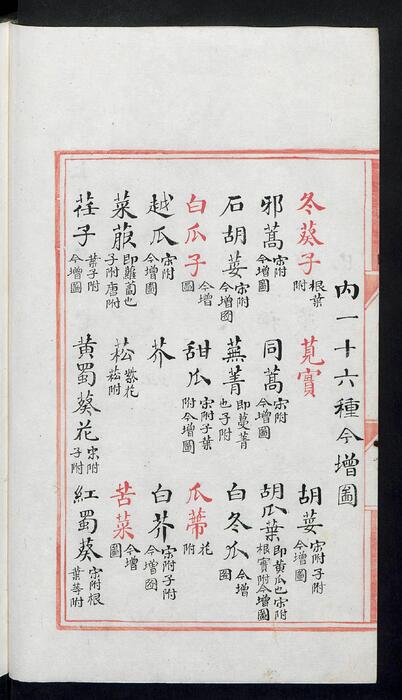 內一十六種今增圖
冬葵子根葉附 莧實 胡荽宋附子附今增圖
邪蒿宋附今增圖 同蒿宋附今增圖 胡瓜葉即黃瓜也宋附根實附今增圖
石胡荽宋附今增圖 蕪菁即蔓菁也子附 白冬瓜今增圖
白瓜子今增圖 甜瓜宋附子葉附今增圖 瓜蒂花附
越瓜宋附今增圖 芥 白芥宋附子附今增圖
菜菔即蘿蔔也子附唐附 菘紫花菘附 苦菜今增圖
荏子葉子附今增圖 黃蜀葵花宋附子附 紅蜀葵宋附根葉莖附